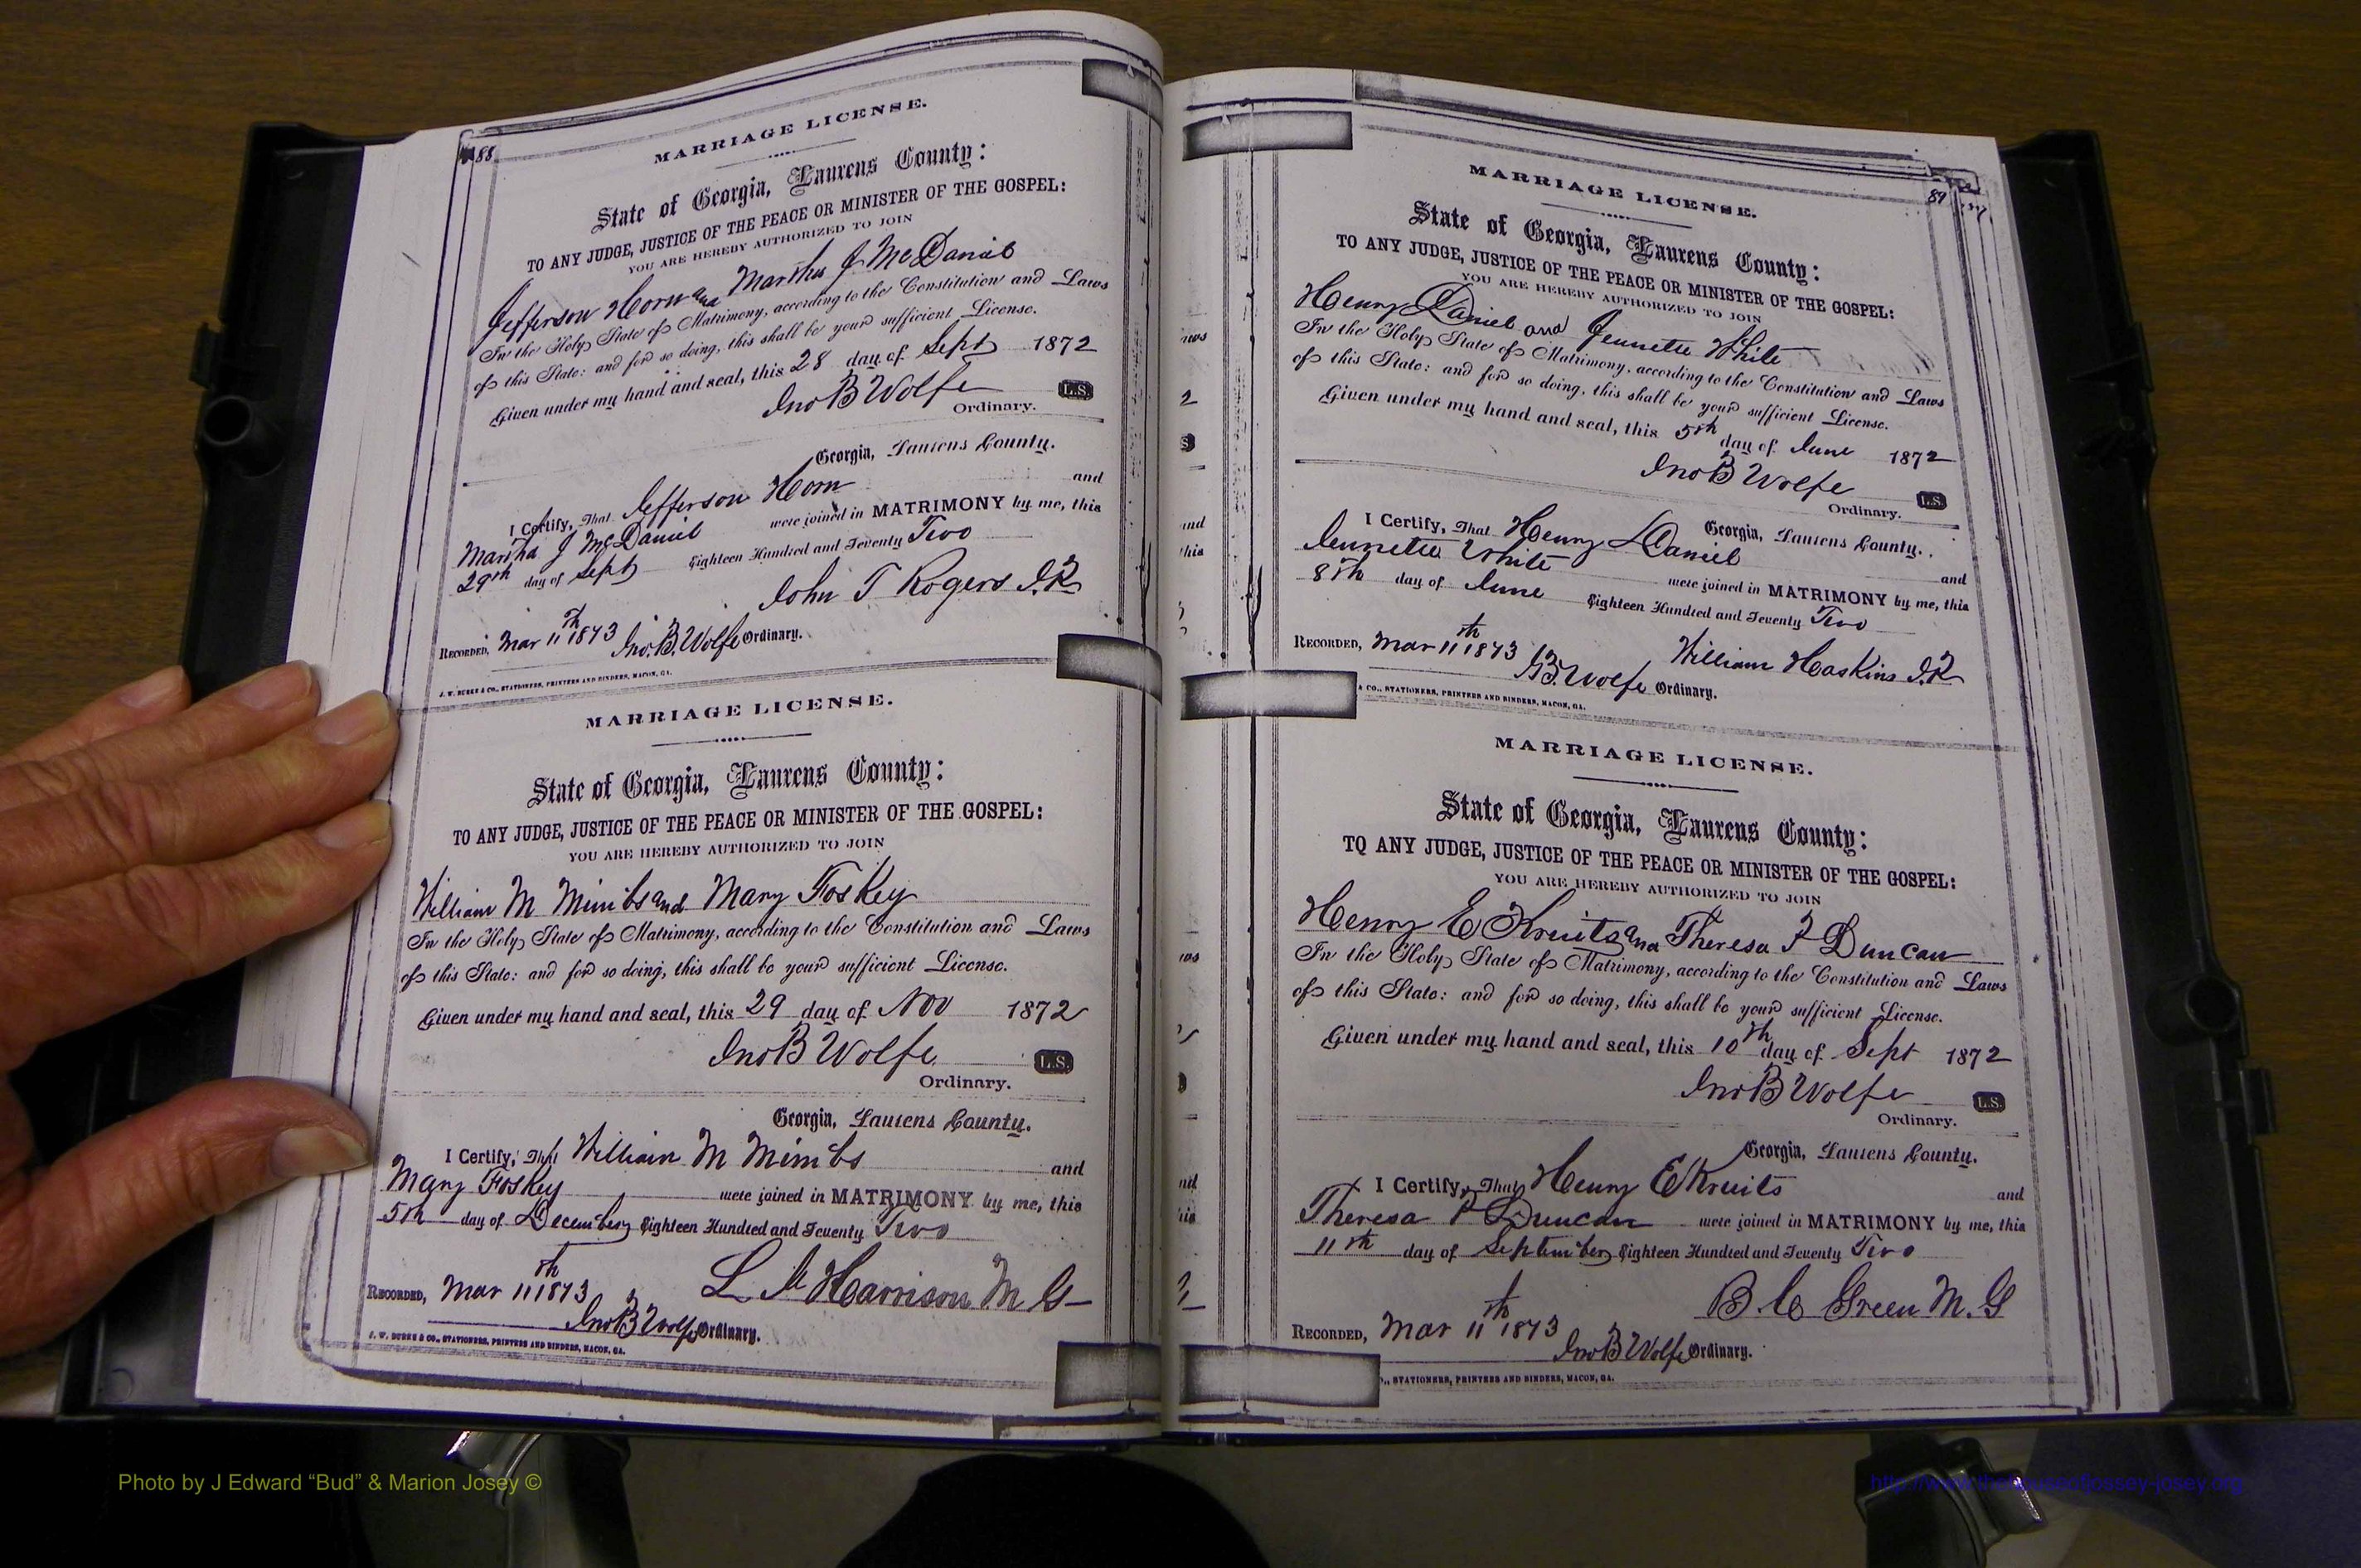 88
MARRIAGE LICENSE.
State of Georgia, Laurens County:
TO ANY JUDGE, JUSTICE OF THE PEACE OR MINISTER OF THE GOSPEL:
YOU ARE HEREBY AUTHORIZED TO JOIN
Jefferson Horn and Martha J McDaniel
In the Holy State of Matrimony, according to the Constitution and Laws
of this State: and for so doing, this shall be your sufficient License.
Given under my hand and seal, this 28 day of Sept 1872
Jno B Wolfe L.S.
Ordinary.
Georgia, Laurens County.
I Certify, That Jefferson Horn and
Martha J McDaniel were joined in MATRIMONY by me, this
29th day of Sept Eighteen Hundred and Seventy Two
John T Rogers J.P.
RECORDED, Mar 11th 1873 Jno. B. Wolfe Ordinary.
J. W. BURKE & CO., STATIONERS, PRINTERS AND BINDERS, MACON, GA.
MARRIAGE LICENSE.
State of Georgia, Laurens County:
TO ANY JUDGE, JUSTICE OF THE PEACE OR MINISTER OF THE GOSPEL:
YOU ARE HEREBY AUTHORIZED TO JOIN
William M Mimbs and Mary Foskey
In the Holy State of Matrimony, according to the Constitution and Laws
of this State: and for so doing, this shall be your sufficient License.
Given under my hand and seal, this 29 day of Nov 1872
Jno B Wolfe L.S.
Ordinary.
Georgia, Laurens County.
I Certify, That William M Mimbs and
Mary Foskey were joined in MATRIMONY by me, this
5th day of December Eighteen Hundred and Seventy Two
L Harrison M G
RECORDED, Mar 11th 1873
Jno B Wolfe Ordinary.
J. W. BURKE & CO., STATIONERS, PRINTERS AND BINDERS, MACON, GA.
89
MARRIAGE LICENSE.
State of Georgia, Laurens County:
TO ANY JUDGE, JUSTICE OF THE PEACE OR MINISTER OF THE GOSPEL:
YOU ARE HEREBY AUTHORIZED TO JOIN
Henry Daniel and Jennette White
In the Holy State of Matrimony, according to the Constitution and Laws
of this State: and for so doing, this shall be your sufficient License.
Given under my hand and seal, this 5th day of June 1872
Jno B Wolfe L.S.
Ordinary.
Georgia, Laurens County.
I Certify, That Henry Daniel and
Jennette White were joined in MATRIMONY by me, this
8th day of June Eighteen Hundred and Seventy Two
William Haskins J.P.
RECORDED, Mar 11th 1873
B. Wolfe Ordinary.
& CO., STATIONERS, PRINTERS AND BINDERS, MACON, GA.
MARRIAGE LICENSE.
State of Georgia, Laurens County:
TO ANY JUDGE, JUSTICE OF THE PEACE OR MINISTER OF THE GOSPEL:
YOU ARE HEREBY AUTHORIZED TO JOIN
Henry E Kreits and Theresa P Duncan
In the Holy State of Matrimony, according to the Constitution and Laws
of this State: and for so doing, this shall be your sufficient License.
Given under my hand and seal, this 10th day of Sept 1872
Jno B Wolfe L.S.
Ordinary.
Georgia, Laurens County.
I Certify, That Henry E Kreits and
Theresa P Duncan were joined in MATRIMONY by me, this
11th day of September Eighteen Hundred and Seventy Two
B. C Green M.G
RECORDED, Mar 11th 1873
Jno B Wolfe Ordinary.
STATIONERS, PRINTERS AND BINDERS, MACON, GA.
Photo by J Edward “Bud” & Marion Josey ©
http://www.thehouseofjossey-josey.org